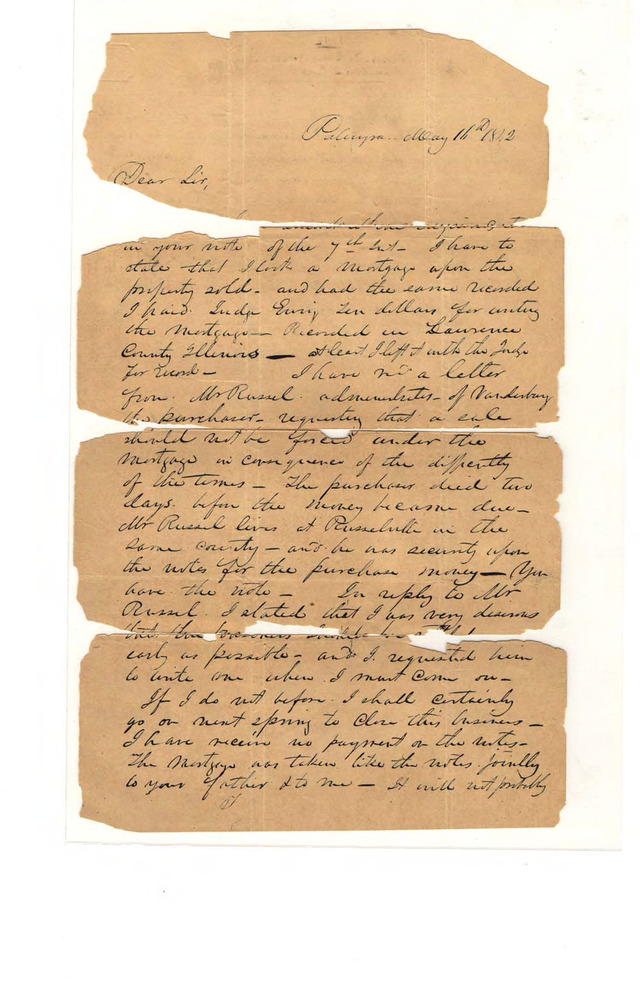 Palmyra. May 14th 1842
Dear Sir,
in your note of the 7th Inst - I have to
state that I took a mortgage upon the
property sold - and had the same recorded
I paid Judge Ewing Ten dollars for writing
the mortgage - Recorded in Lawrence
County Illinois — at least I left it with the Judge
for record - I have a letter
from Mr Russel administrator of Vanderburg
the purchaser - requesting that a sale
should not be forced under the
mortgage in consequence of the difficulty
of the times - The purchaser died two
days before the money became due -
Mr Russel lives at Russelville in the
same county - and he was security upon
the notes for the purchase money — You
have the note - In reply to Mr
Russel I stated that I was very desirous
that the
early as possible - and I requested him
to write me when I must come on -
If I do not before I shall certainly
go on next spring to close this business -
I have receive no payment on the notes -
The mortgage was taken like the notes jointly
to your father & to me - It will not probably